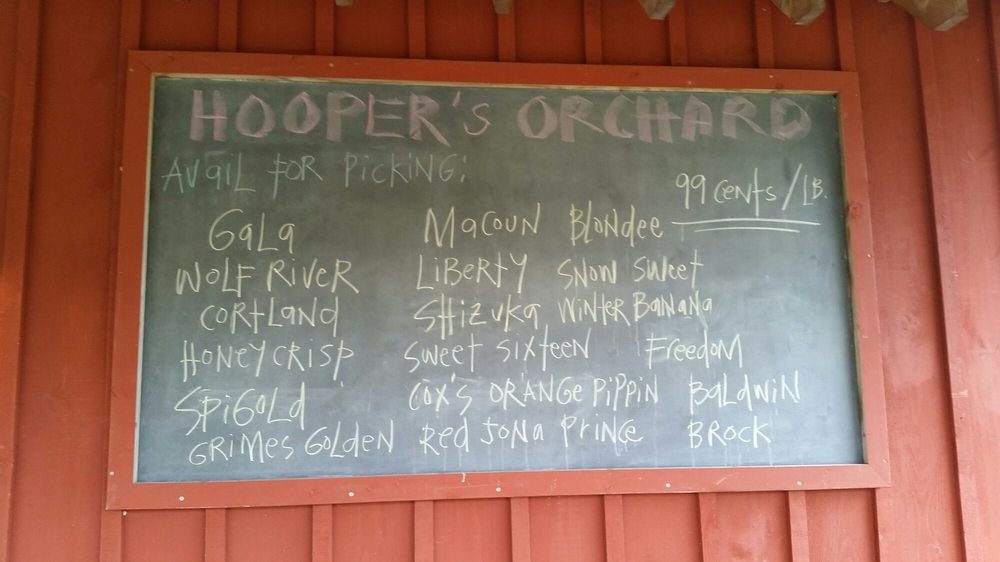 HOOPER's ORCHARD
AVaiL FOR PiCKiNG:
99 Cents/LB.
GaLa MaCOUN BLoNdee
WOLF RiVeR LiBeRTY SNOW SWeet
CORtLaNd SHiZUKa WiNteR BaNaNa
HONeYCRiSP SWeet SiXteeN FReedOM
SPiGOLd COX'S ORaNGe PiPPiN BaLdWiN
GRiMeS GOLdeN Red JONa PRiNCe BROCK